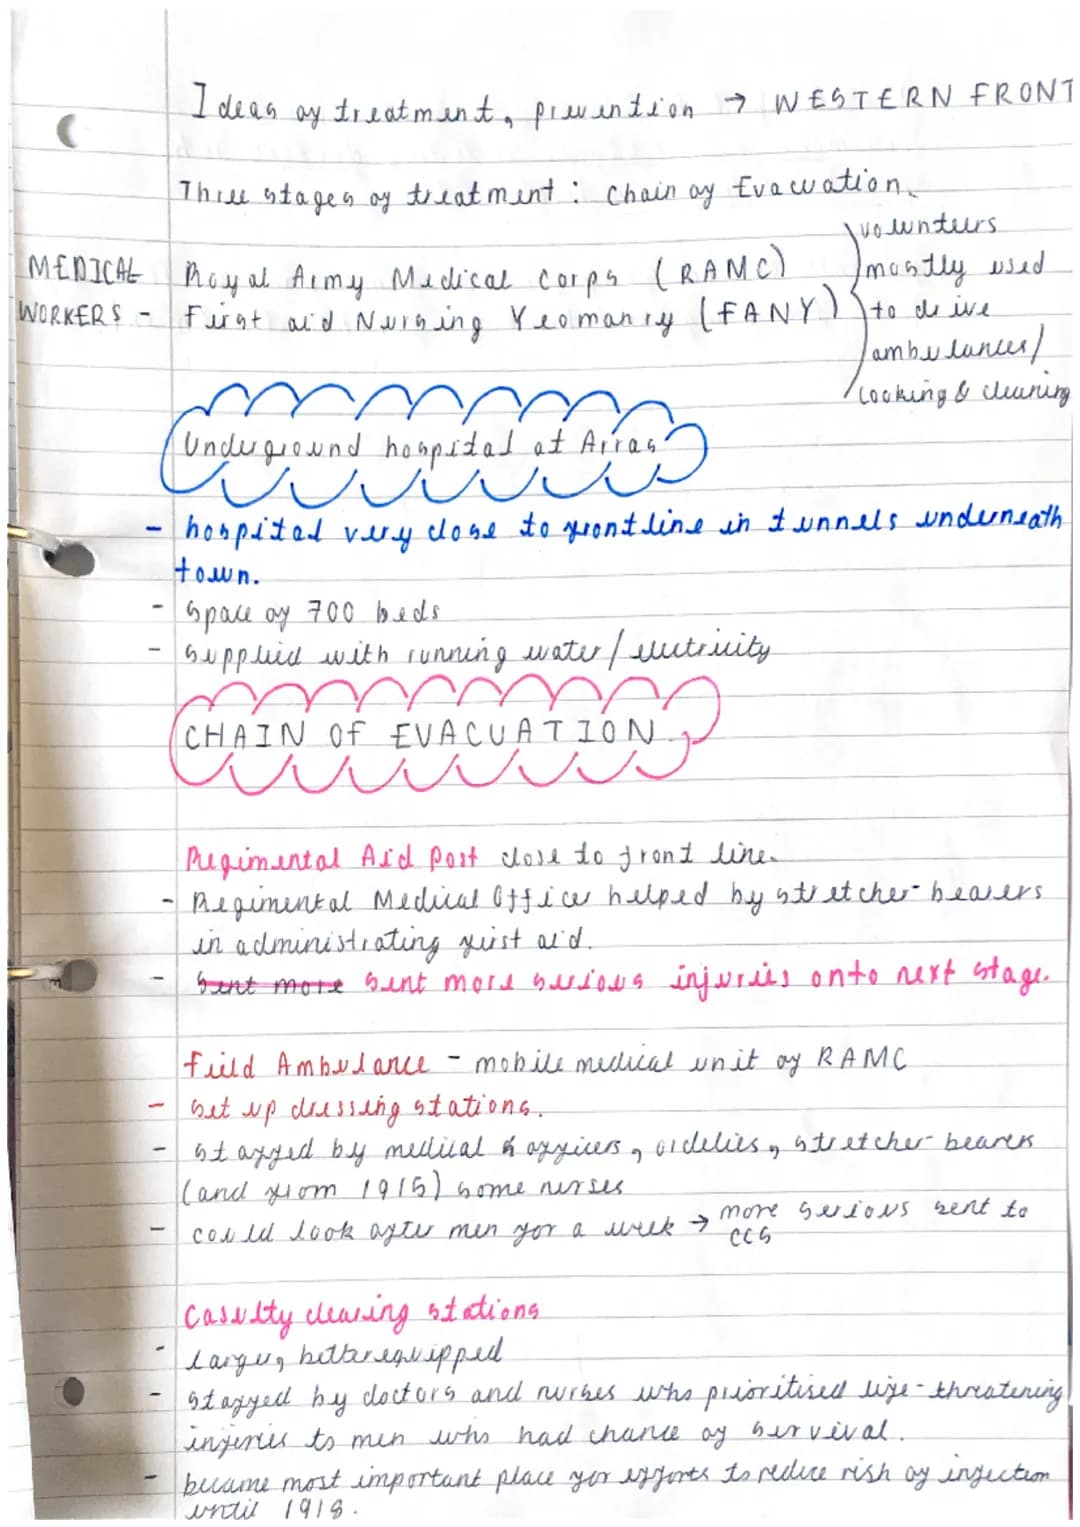 Ideas of treatment, prevention → WESTERN FRONT
Three stages of treatment: Chain of Evacuation.
MEDICAL WORKERS - Royal Army Medical Corps (RAMC)
First aid Nursing Yeomanry (FANY)
volunteers
mostly used
to drive
ambulances/
cooking & cleaning
Underground hospital at Arras
- hospital very close to frontline in tunnels underneath
town.
- Space of 700 beds
- Supplied with running water/electricity
CHAIN OF EVACUATION.
Regimental Aid Post close to front line.
- Regimental Medical Officer helped by stretcher-bearers
in administrating first aid.
- Sent more Sent more serious injuries onto next stage.
Field Ambulance - mobile medical unit of RAMC
- Set up dressing stations.
- Staffed by medical officers, ordelies, stretcher-bearers
(and from 1915) some nurses
- could look after men for a week → more serious sent to
CCS
Casulty clearing stations
- larger, better equipped
- Staffed by doctors and nurses who prioritised life-threatening
injuries to men who had chance of survival.
- became most important place for efforts to reduce risk of infection
until 1918.